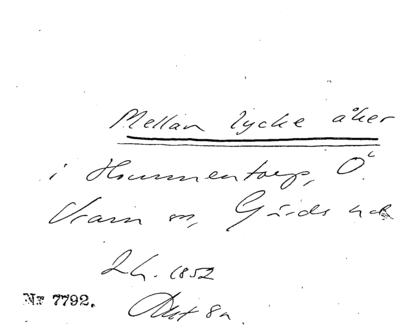 Mellan lycke åker
i Hommentorp, Ö.
Vram sn, Gärds hd
Lh. 1852
Nr 7792.